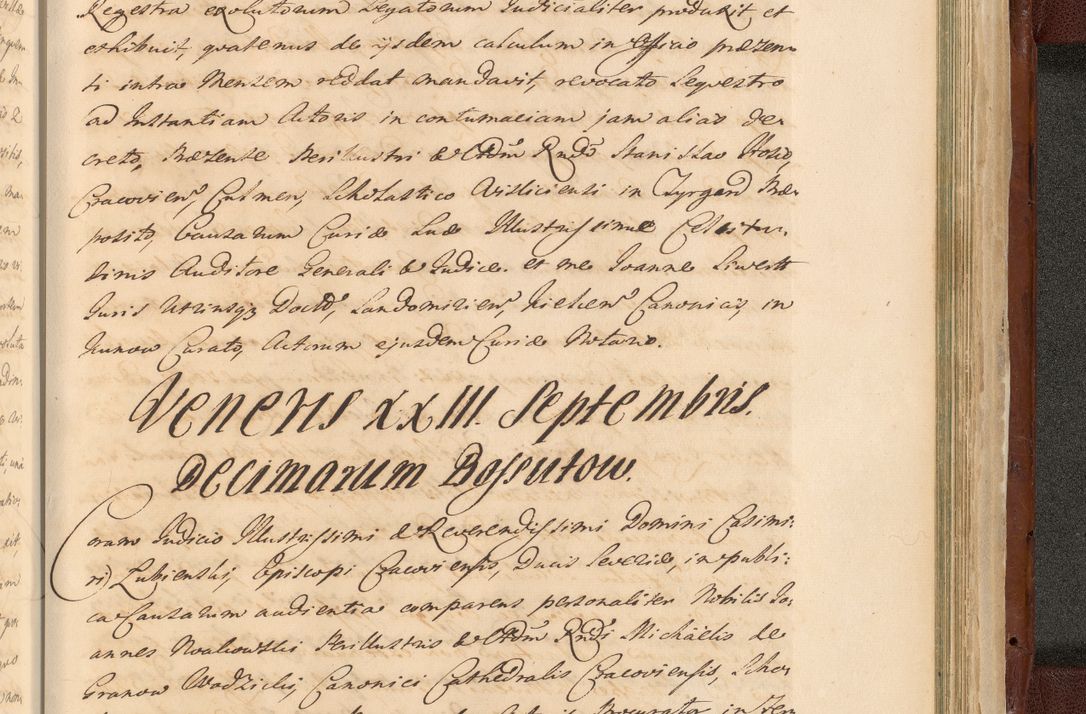 Regestra exolutorum Legatorum Judicialiter produxit et
exhibuit, quatenus de ijsdem calculum in Officio præzen
ti intra Mensem reddat mandavit, revocato Sequestro
ad Instantiam Actoris in contumaciam jam alias de
creto, Præzente Perillustri & Adm Rndo Stanislao Hosio,
Cracovien, Culmen, Scholastico Visliciensi in Tyrgard Præ
posito, Causarum Curiæ Suæ Illustrissimæ Celsitu
dinis Auditore Generali & Judice. et me Joanne Siwertt
Juris Utriusq3 Docto, Sandomirien, Kielcen Canonico, in
Kunow Curato, Actorum ejusdem Curiæ Notario.
Veneris XXIII. Septembris.
Decimarum Bossutow.
Coram Judicio Illustrissimi & Reverendissimi Domini Casimi:
ri Łubienski, Episcopi Cracoviensis, Ducis Severiæ, in publi:
ca Causarum audientia comparens personaliter Nobilis Jo,
annes Noakowski Perillustris & Adm Rndi Michaelis de
Granow Wodzicki, Canonici Cathedralis Cracoviensis, Scho,
Procurator in Ter